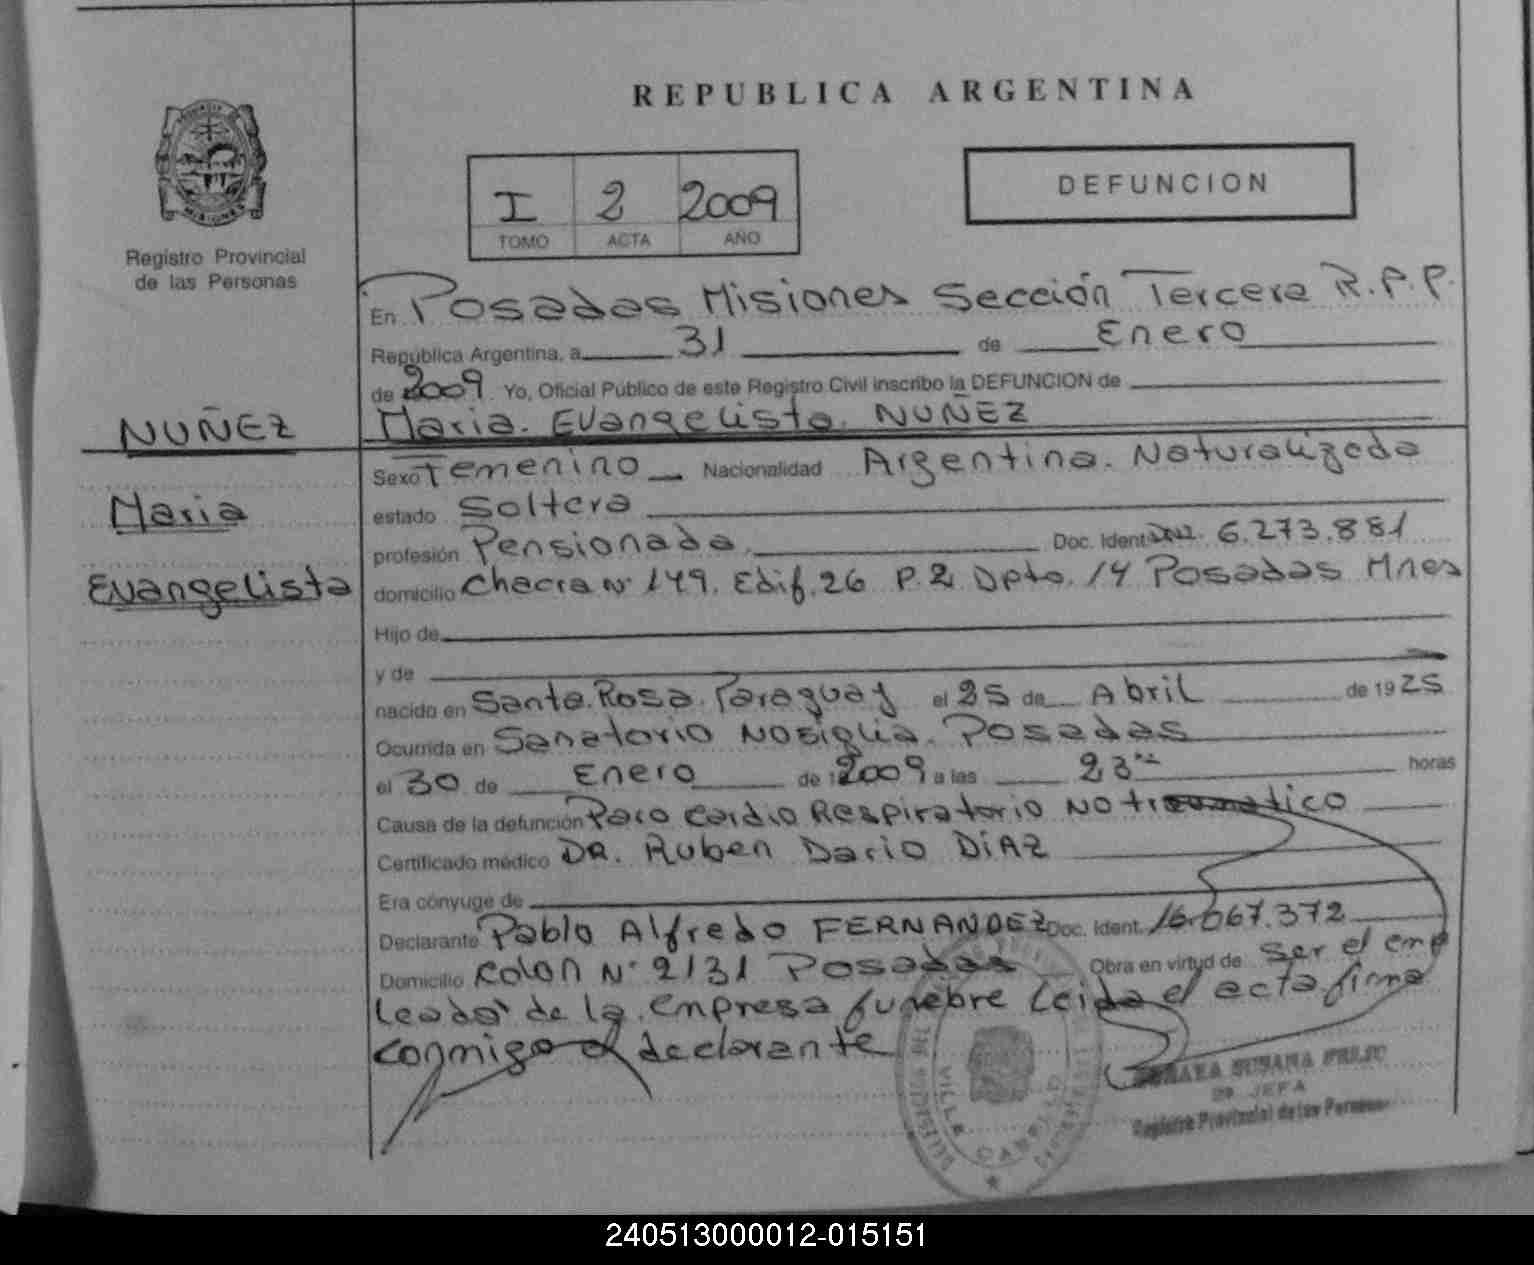 REPUBLICA ARGENTINA
I 2 2009
TOMO ACTA AÑO
DEFUNCION
Registro Provincial
de las Personas
NUÑEZ
Maria
Evangelista
En Posadas Misiones Sección Tercera R.P.P.
República Argentina, a 31 de Enero
de 2009 Yo, Oficial Público de este Registro Civil inscribo la DEFUNCION de
Maria. Evangelista. NUÑEZ
Sexo Femenino Nacionalidad Argentina. Naturalizada
estado Soltera
profesión Pensionada Doc. Ident. DNI. 6.273.881
domicilio Chacra Nº 149. Edif. 26 P. 2 Dpto. 14 Posadas Mnes
Hijo de
y de
nacido en Santa. Rosa. Paraguay el 25 de Abril de 1925
Ocurrida en Sanatorio Nosiglia. Posadas
el 30 de Enero de 2009 a las 23 horas
Causa de la defunción Paro Cardio Respiratorio No traumatico
Certificado médico DR. Ruben Dario DiAZ
Era cónyuge de
Declarante Pablo Alfredo FERNANDEZ Doc. Ident. 16.067.372
Domicilio Colon Nº 2131 Posadas Obra en virtud de ser el emp
leador de la empresa funebre Leida el acta firma
conmigo el declarante
SUSANA
JEFA
Registro Provincial de las Personas
VILLA CABELLO
240513000012-015151